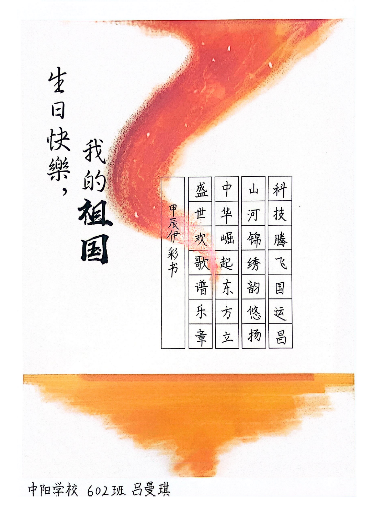 生日快樂，
我的祖国
科技腾飞国运昌
山河锦绣韵悠扬
中华崛起东方立
盛世欢歌谱乐章
甲辰伊彩书
中阳学校 602班 吕曼琪